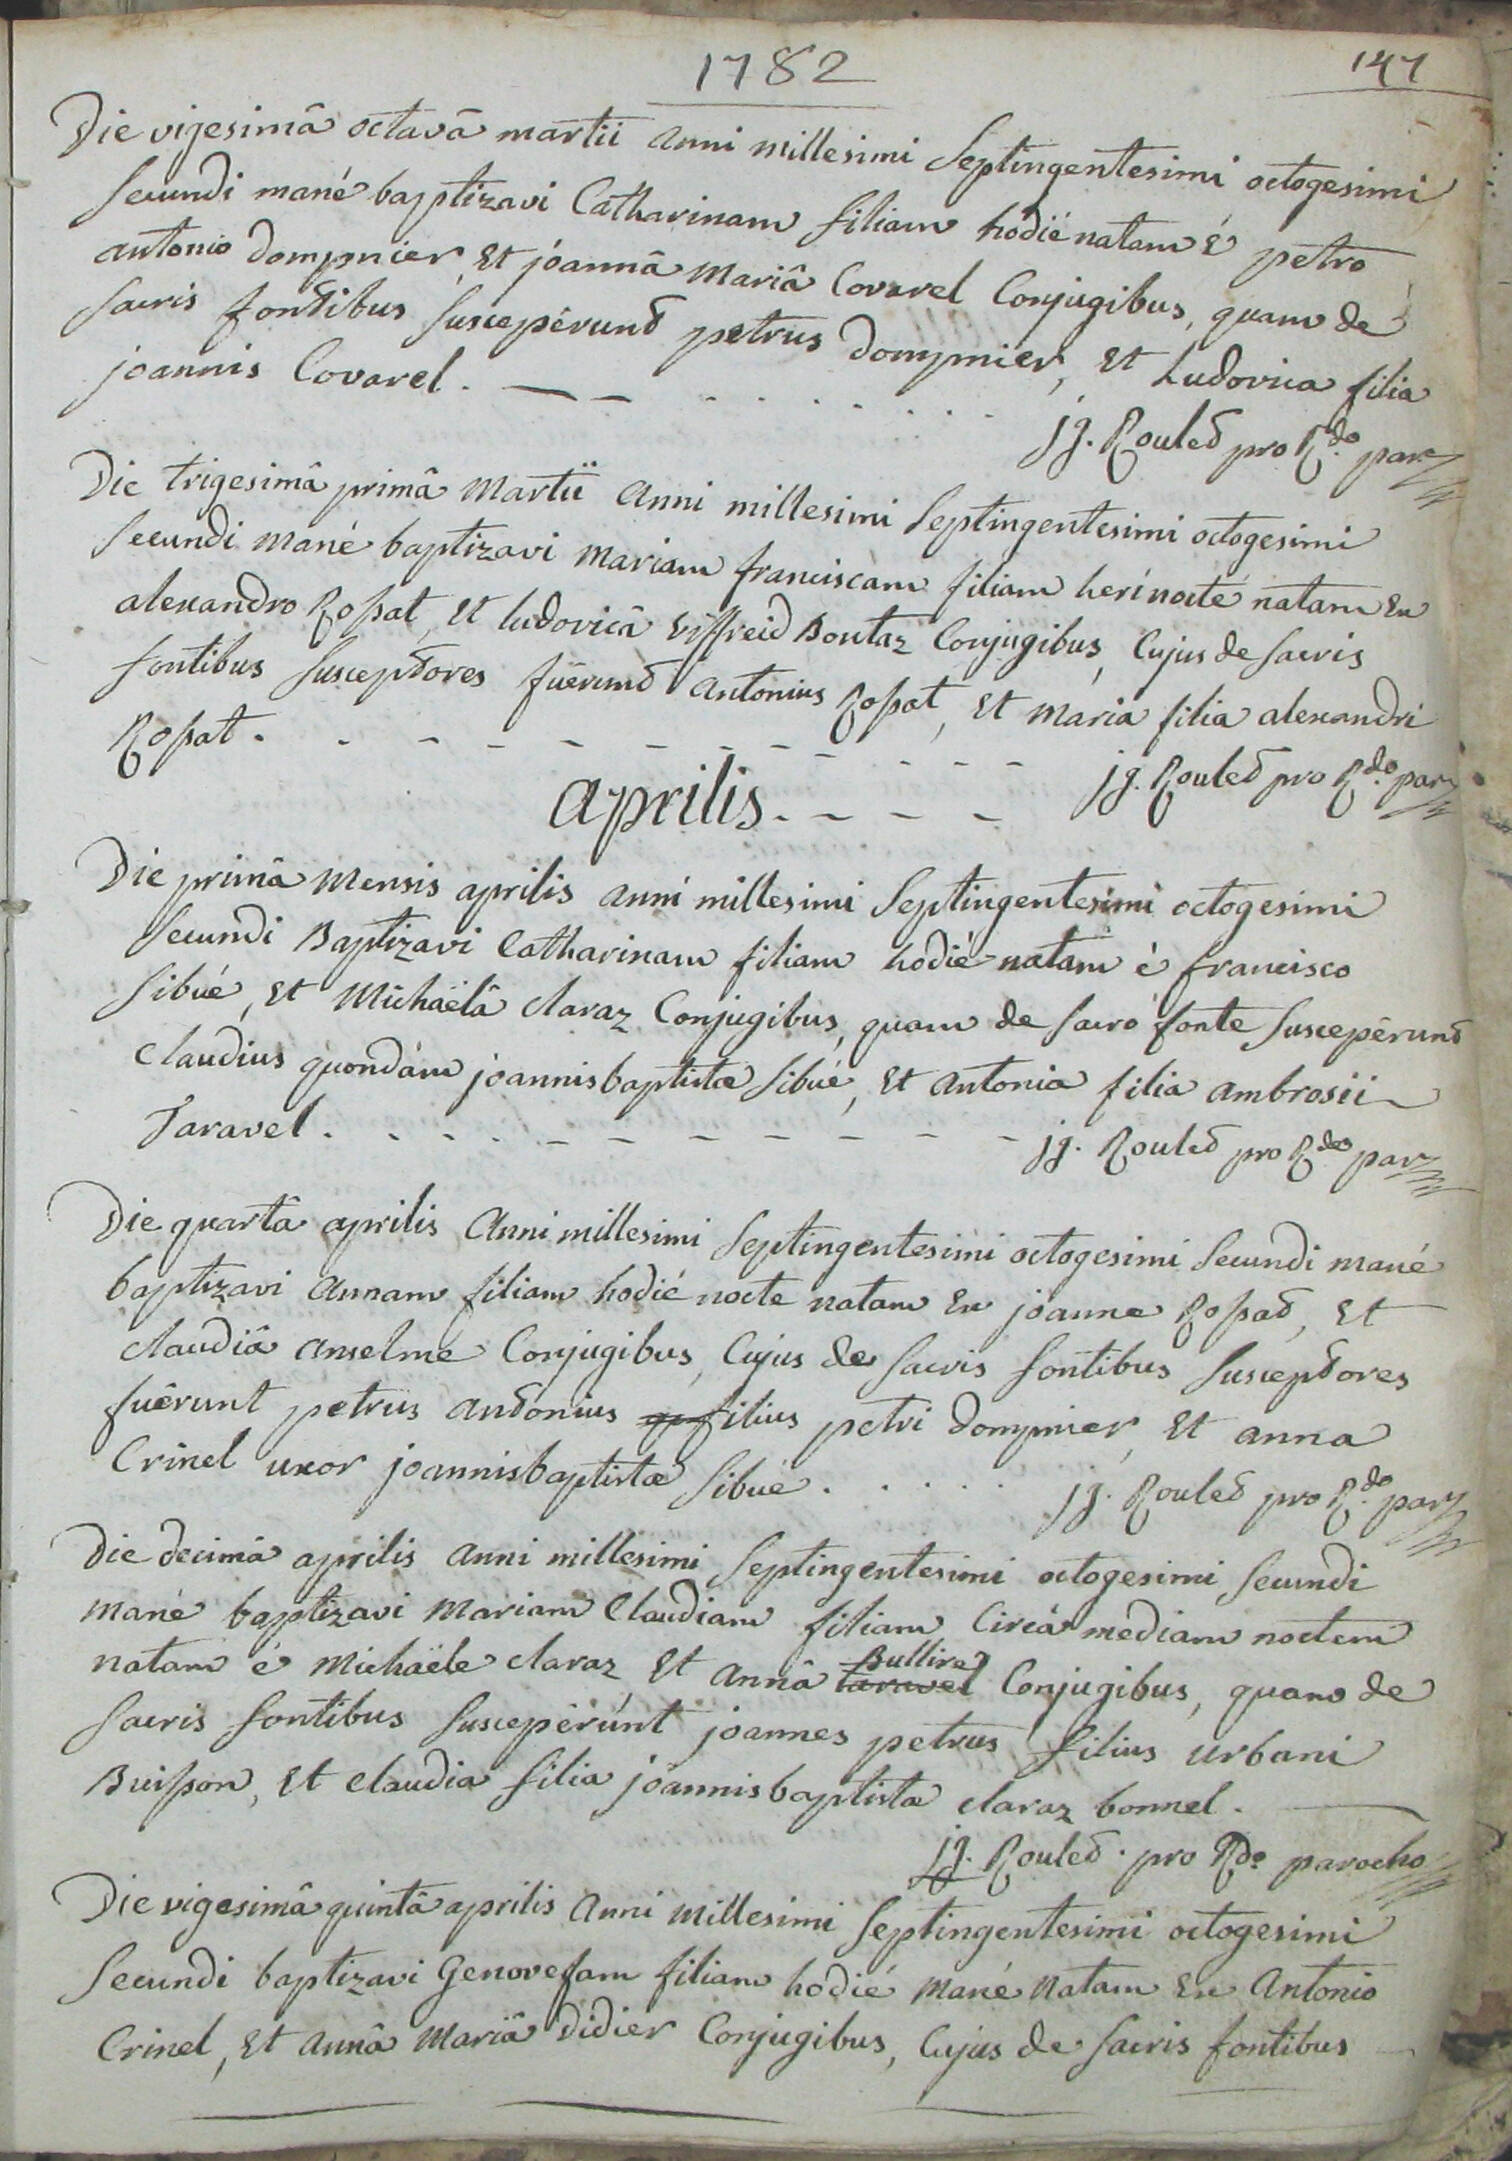 1782
147
Die vigesimâ octavâ martii anni millesimi Septingentesimi octogesimi
Secundi mané baptizavi Catharinam filiam hodié natam é petro
antonio dompnier, Et joannâ Mariâ Covarel Conjugibus, quam de
Sacris fontibus Suscepêrunt petrus dompnier, Et Ludovica filia
joannis Covarel.
jj. Roulet pro Rdo. par
Die trigesimâ primâ Martii Anni millesimi Septingentesimi octogesimi
Secundi Mané baptizavi Mariam franciscam filiam heri nocté natam Ex
alexandro Rossat, Et ludovicâ Viffreid Bontaz Conjugibus, Cujus de Sacris
fontibus Susceptores fuêrunt antonius Rossat, Et Maria filia alexandri
Rossat.
jj. Roulet pro Rdo. par
aprilis
Die primâ Mensis aprilis anni millesimi Septingentesimi octogesimi
Secundi Baptizavi Catharinam filiam hodié natam é francisco
Sibué, Et Michaëlâ claraz Conjugibus, quam de Sacro fonte Suscepêrunt
Claudius quondám joannisbaptistæ Sibué, Et Antonia filia ambrosii
Taravel.
jj. Roulet pro Rdo par
Die quartâ aprilis Anni millesimi Septingentesimi octogesimi Secundi mané
baptizavi Annam filiam hodié nocte natam Ex joanne Rossat, Et
claudiâ anselme Conjugibus, Cujus de Sacris fontibus Susceptores
fuêrunt petrus antonius filius petri dompnier, Et anna
Crinel uxor joannisbaptistæ Sibué.
jj. Roulet pro Rdo. par
Die decimâ aprilis anni millesimi Septingentesimi octogesimi Secundi
mané baptizavi Mariam Claudiam filiam Circá mediam noctem
natam é Michaële claraz, Et Annâ taravel Bullire Conjugibus, quam de
Sacris fontibus Suscepêrunt joannes petrus filius urbani
Buisson, Et Claudia filia joannisbaptistæ claraz bonnel.
jj. Roulet. pro Rdo parocho
Die vigesimâ quintâ aprilis anni Millesimi Septingentesimi octogesimi
Secundi baptizavi Genovefam filiam hodié Mané Natam Ex Antonio
Crinel, Et Annâ Mariâ Didier Conjugibus, Cujus de Sacris fontibus